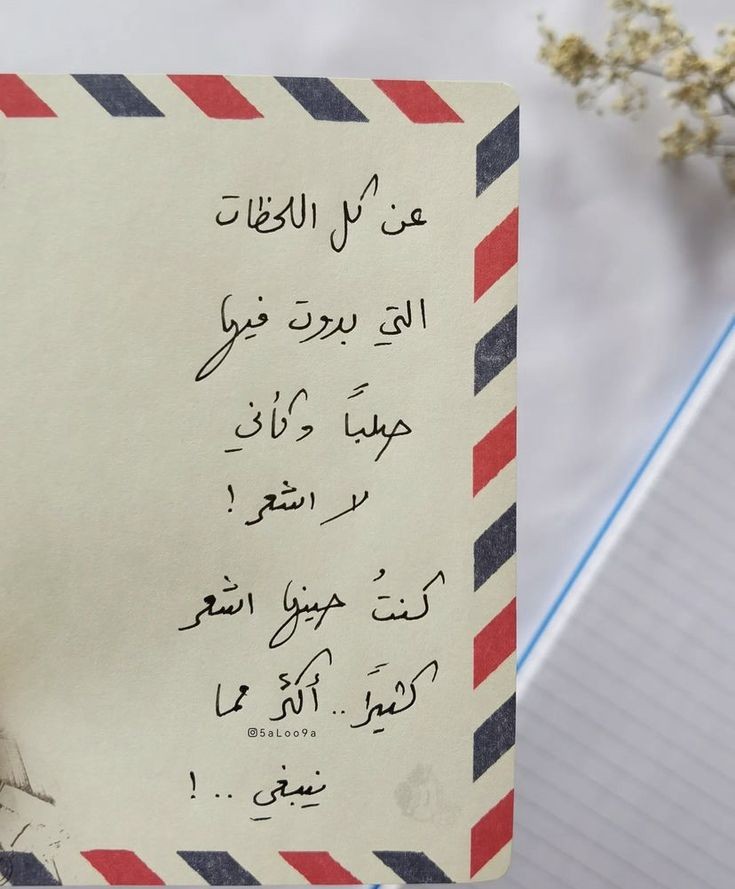 عن كل اللحظات
التي بدوت فيها
صلباً وكأني
لا اشعر !
كنتُ حينها اشعر
كثيراً .. أكثر مما
@5aLoo9a
ينبغي .. !